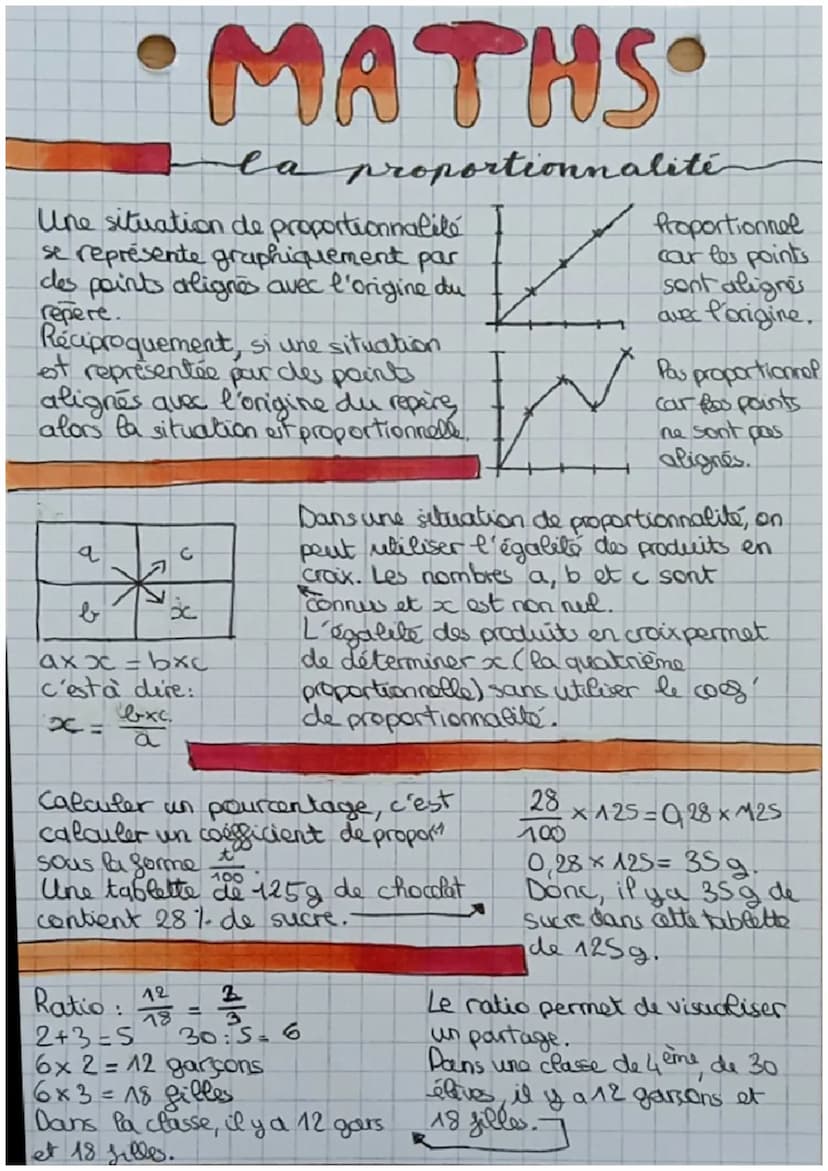 MATHS
la proportionnalité
Une situation de proportionnalité
se représente graphiquement par
des points alignés avec l'origine du
repère.
Réciproquement, si une situation
est représentée par des points
alignés avec l'origine du repère,
alors la situation est proportionnelle.
Proportionnel
car les points
sont alignés
avec l'origine.
Pas proportionnel
car les points
ne sont pas
alignés.
a c
b x
a x x = b x c
c'est à dire:
x = b x c / a
Dans une situation de proportionnalité, on
peut utiliser l'égalité des produits en
croix. Les nombres a, b et c sont
connus et x est non nul.
L'égalité des produits en croix permet
de déterminer x (la quatrième
proportionnelle) sans utiliser le coef'
de proportionnalité.
Calculer un pourcentage, c'est
calculer un coefficient de propor"
sous la forme t/100.
Une tablette de 125g de chocolat
contient 28% de sucre.
28/100 x 125 = 0,28 x 125
0,28 x 125 = 35 g.
Donc, il y a 35g de
sucre dans cette tablette
de 125g.
Ratio : 12/18 = 2/3
2+3=5 30:5= 6
6x 2 = 12 garçons
6x3 = 18 filles
Dans la classe, il y a 12 gars
et 18 filles.
Le ratio permet de visualiser
un partage.
Dans une classe de 4ème, de 30
élèves, il y a 12 garçons et
18 filles.